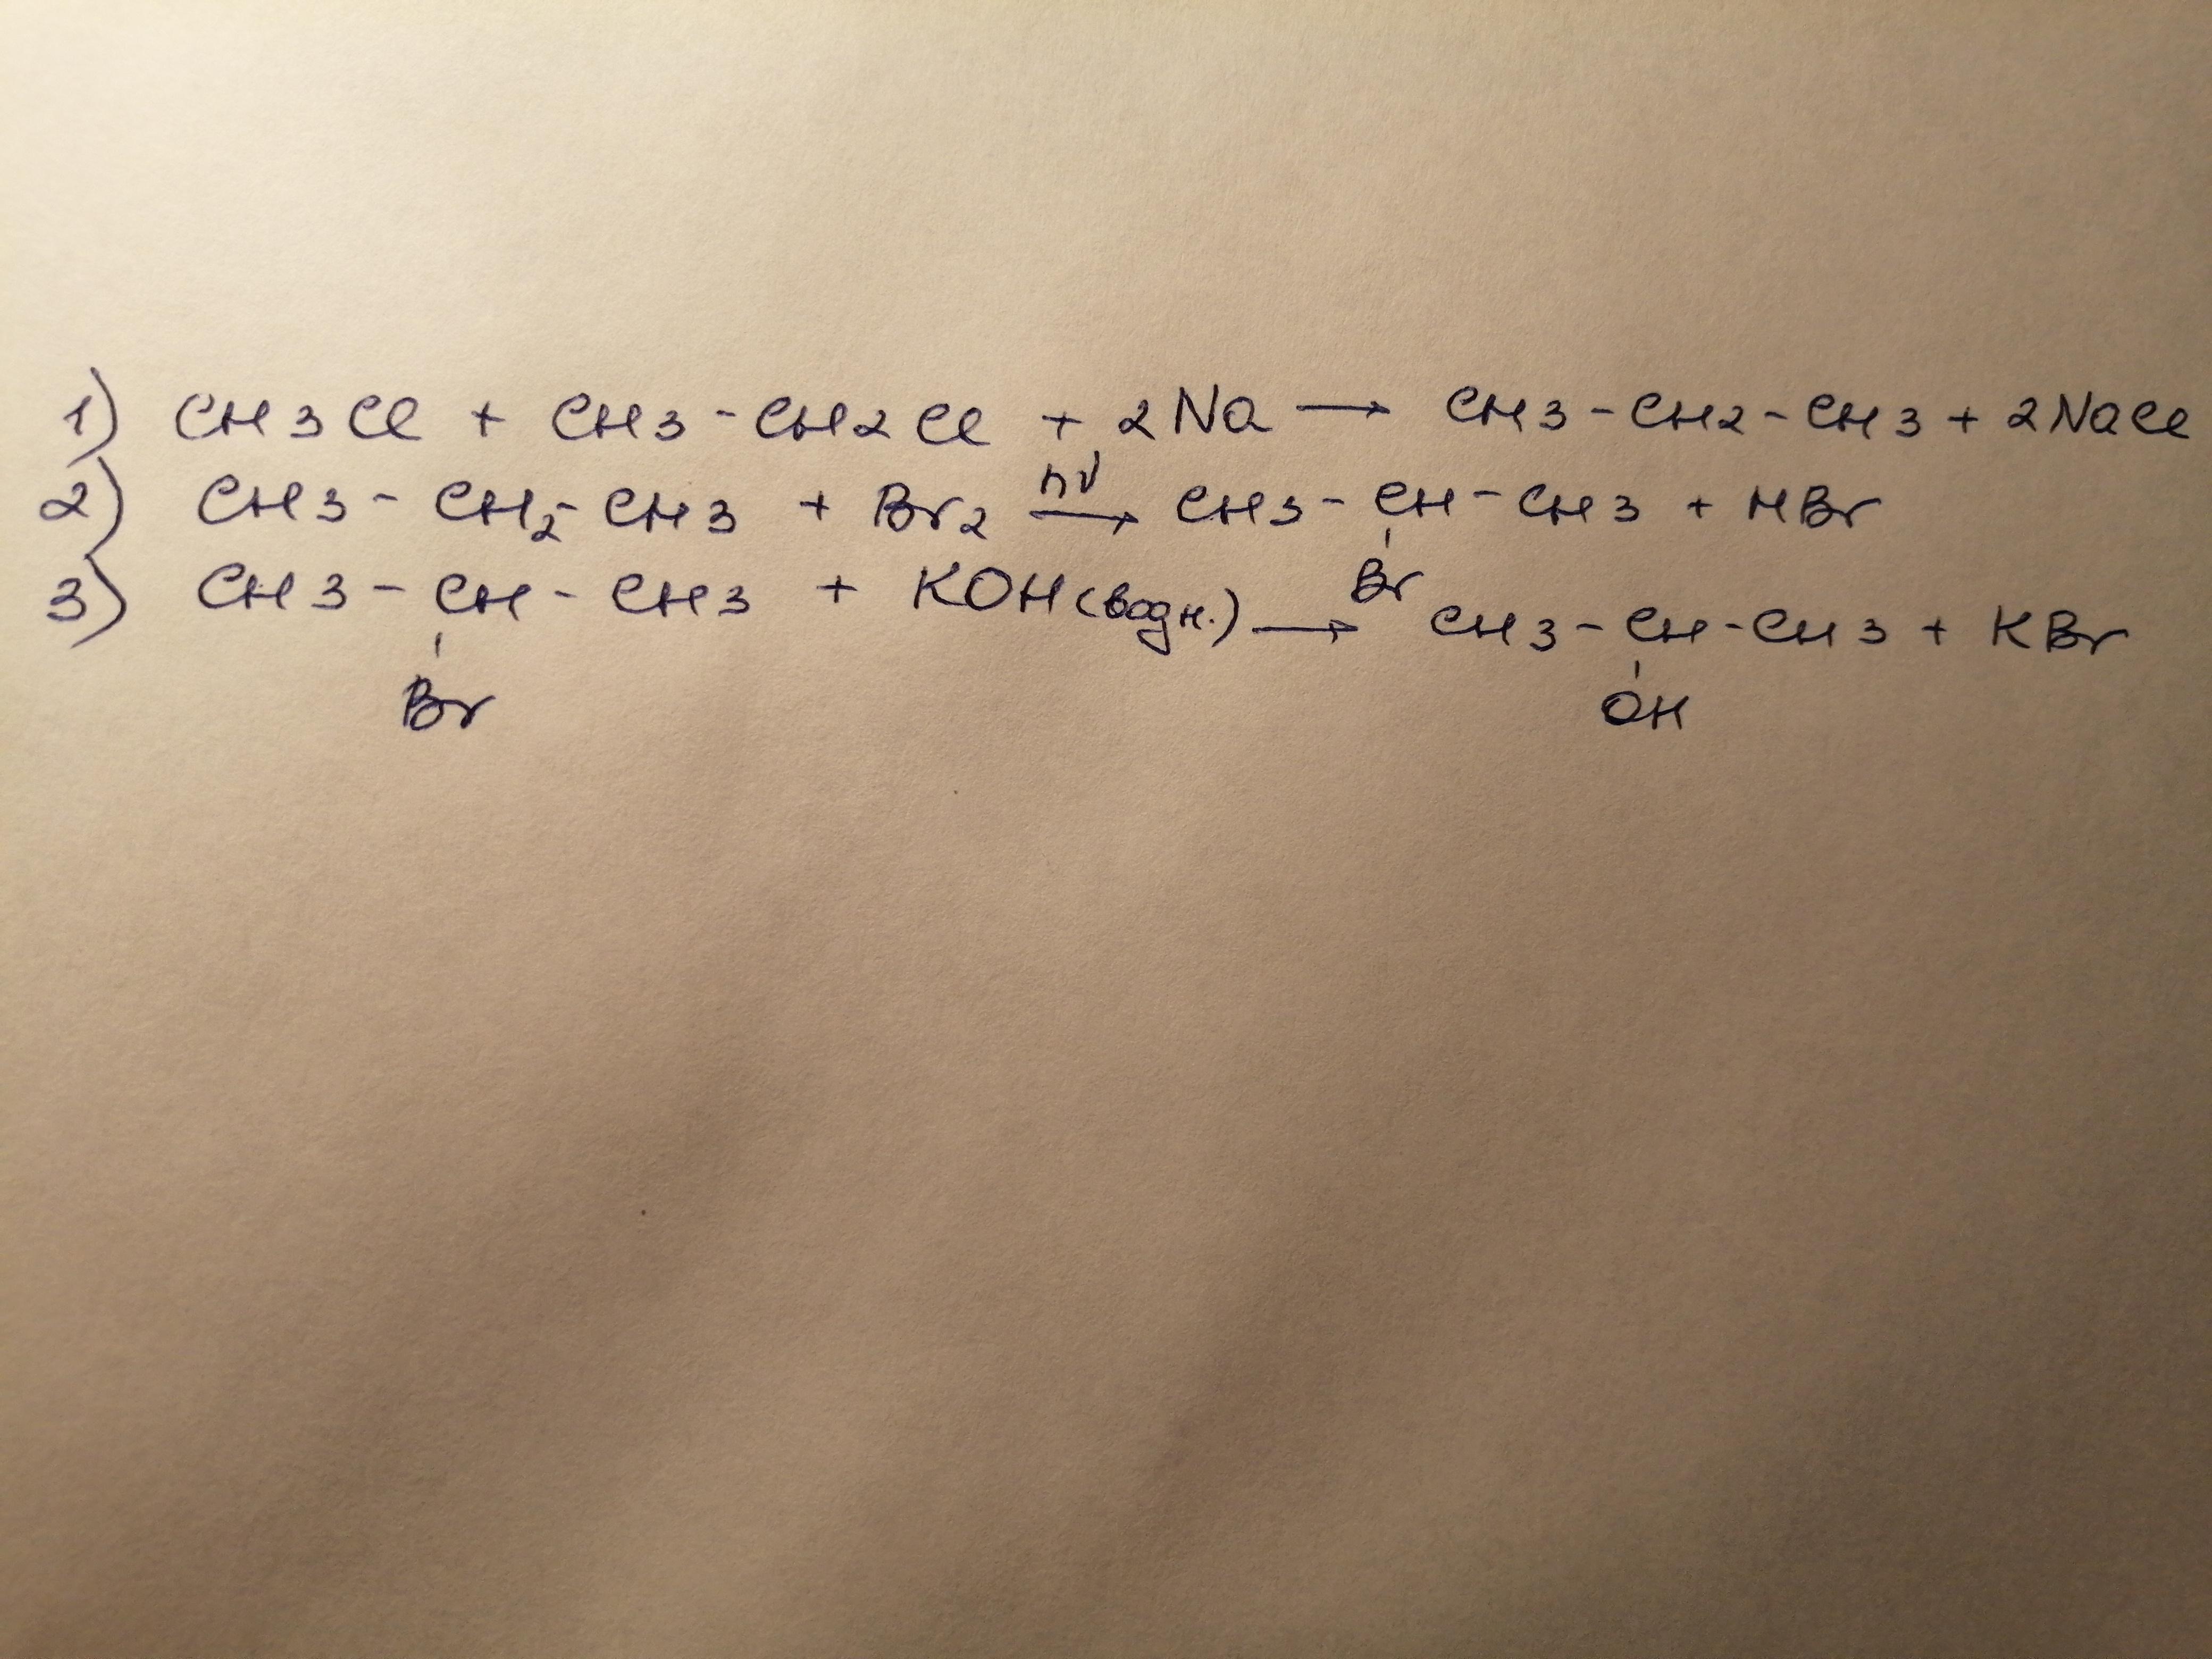 1) CH3Cl + CH3-CH2Cl + 2Na → CH3-CH2-CH3 + 2NaCl
2) CH3-CH2-CH3 + Br2 hν → CH3-CH-CH3 + HBr
Br
3) CH3-CH-CH3 + KOH(водн.) → CH3-CH-CH3 + KBr
Br OH